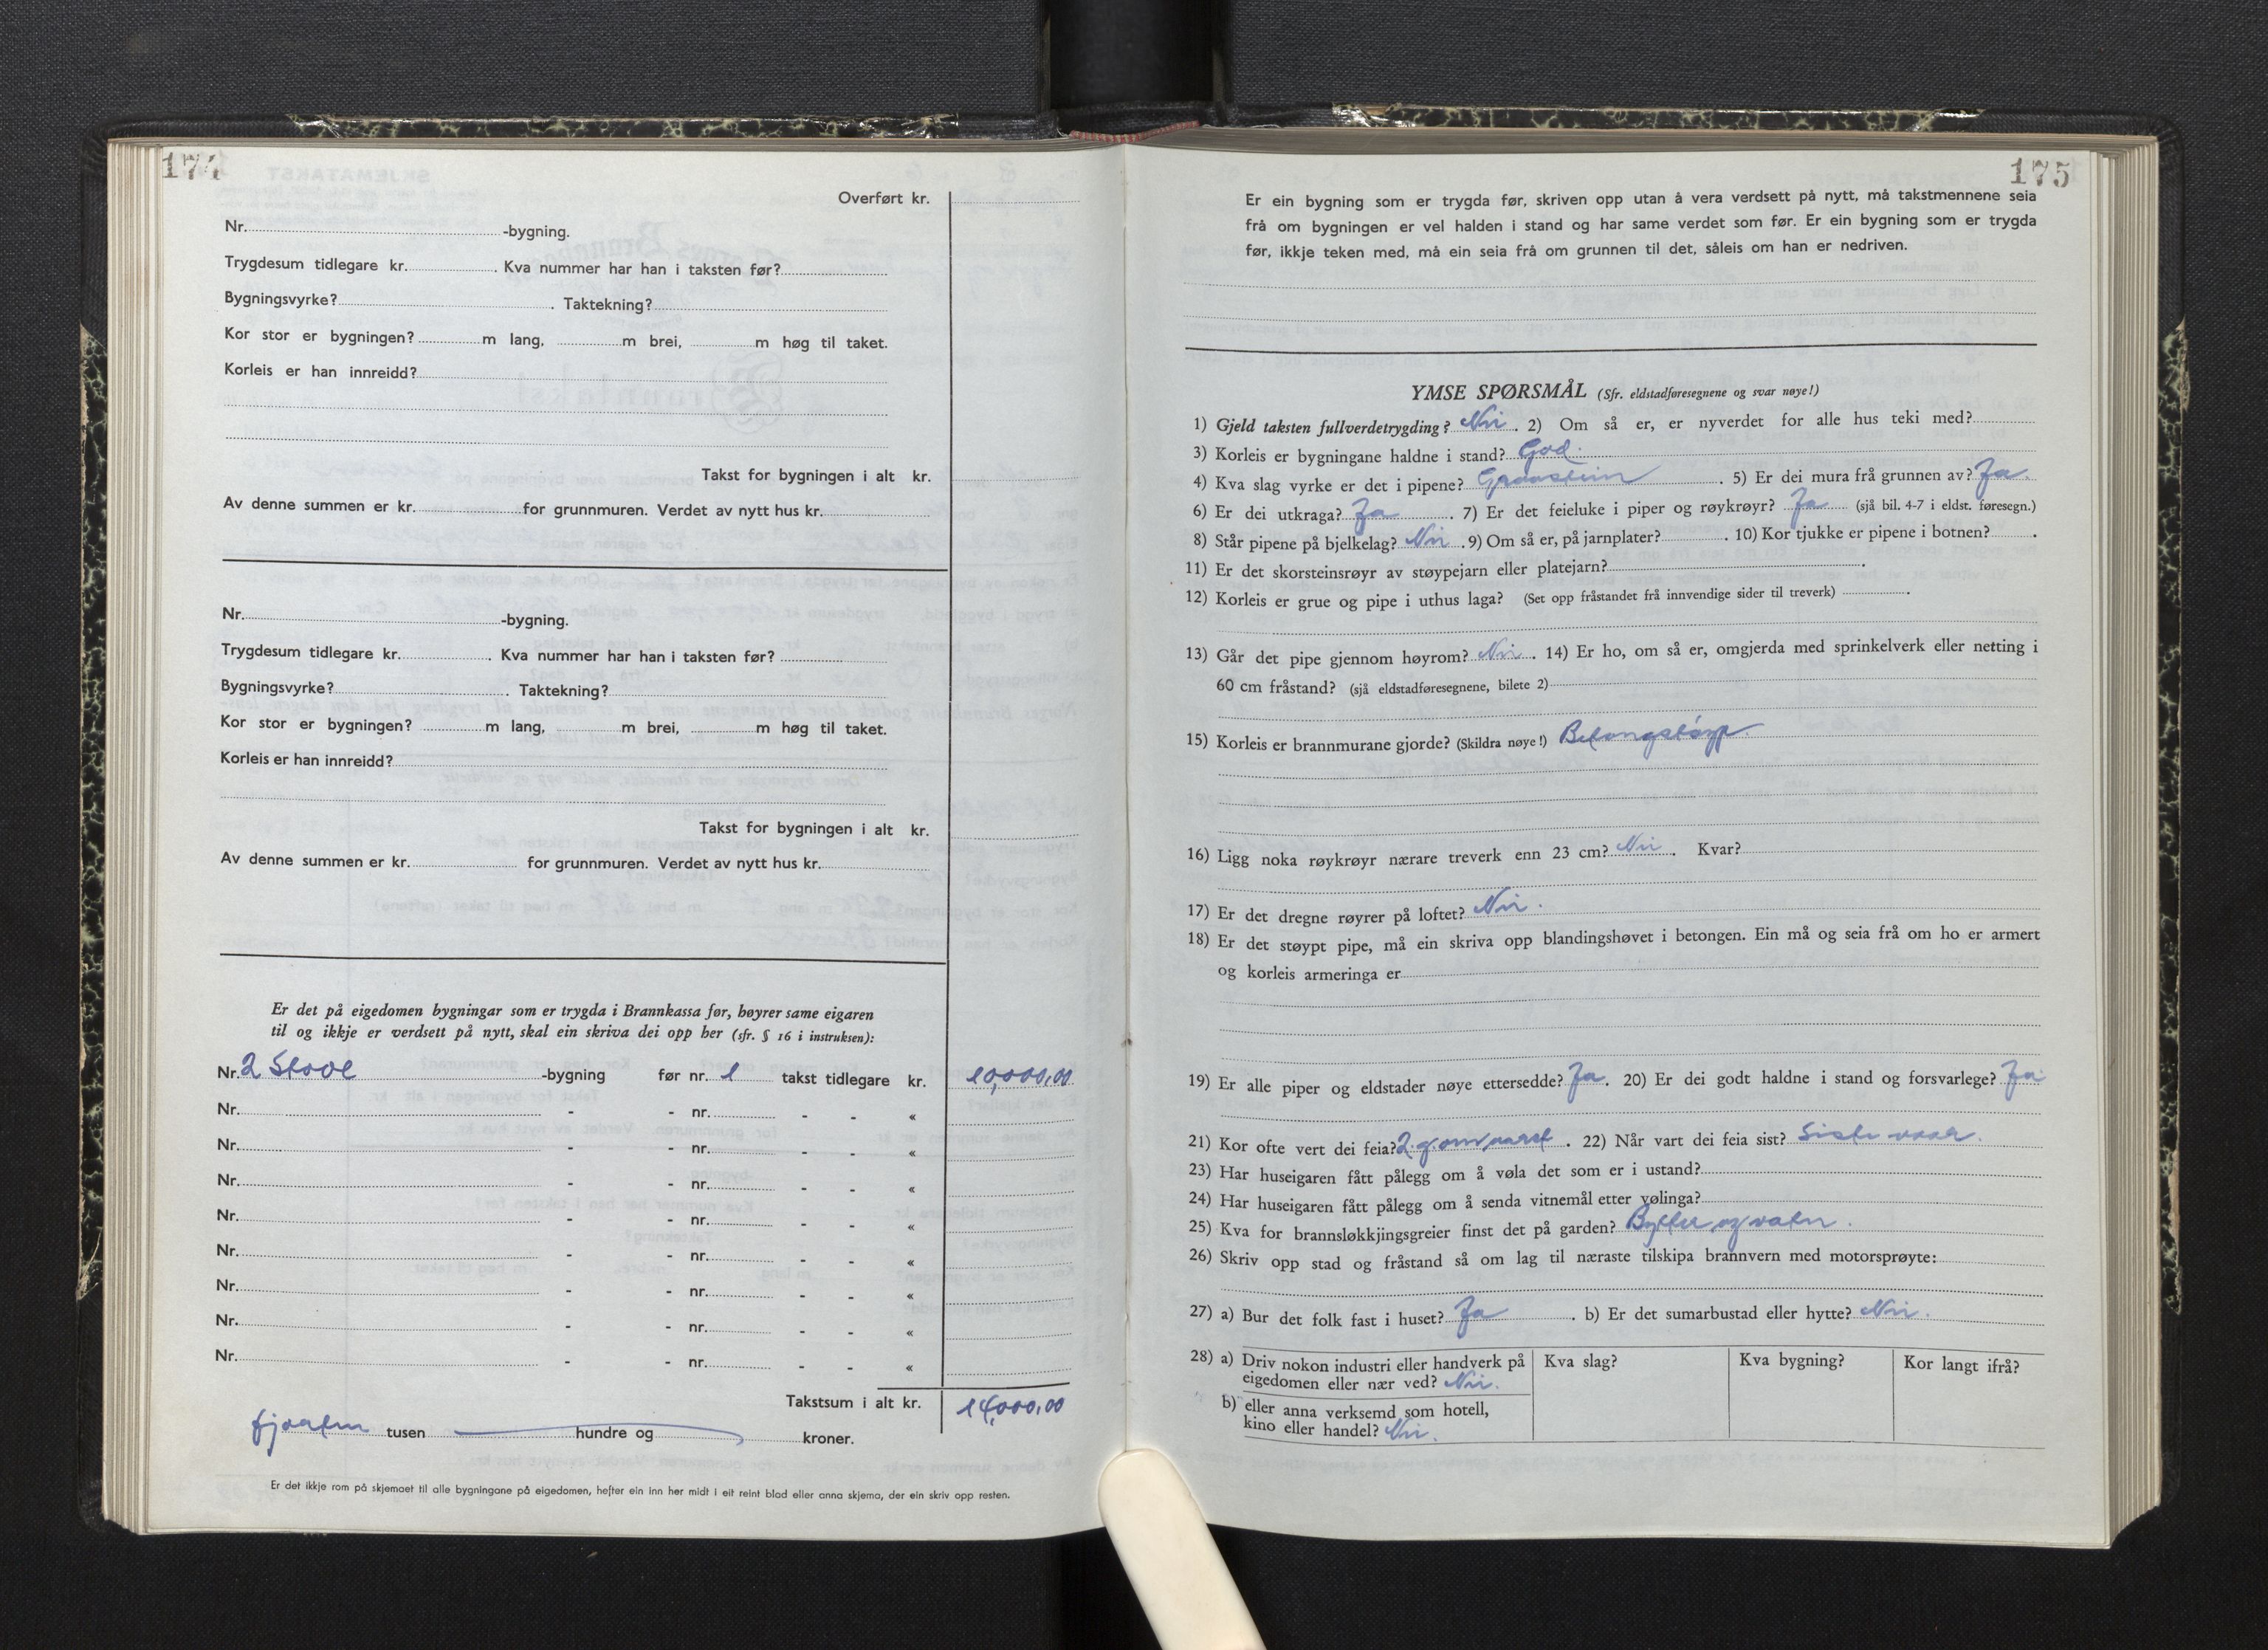 174
Overført kr.
Nr. -bygning.
Trygdesum tidlegare kr. . Kva nummer har han i taksten før?
Bygningsvyrke? . Taktekning?
Kor stor er bygningen? m lang, m brei, m høg til taket.
Korleis er han innreidd?
Takst for bygningen i alt kr.
Av denne summen er kr. for grunnmuren. Verdet av nytt hus kr.
Nr. -bygning.
Trygdesum tidlegare kr. . Kva nummer har han i taksten før?
Bygningsvyrke? . Taktekning?
Kor stor er bygningen? m lang, m brei, m høg til taket.
Korleis er han innreidd?
Takst for bygningen i alt kr.
Av denne summen er kr. for grunnmuren. Verdet av nytt hus kr.
Er det på eigedomen bygningar som er trygda i Brannkassa før, høyrer same eigaren
til og ikkje er verdsett på nytt, skal ein skriva dei opp her (sfr. § 16 i instruksen):
Nr. 2 Stove -bygning før nr. 1 takst tidlegare kr. 10,000,00
Nr. - - nr. - - «
Nr. - - nr. - - «
Nr. - - nr. - - «
Nr. - - nr. - - «
Nr. - - nr. - - «
Nr. - - nr. - - «
Nr. - - nr. - - «
Nr. - - nr. - - «
Takstsum i alt kr. 14,000,00
fjorten tusen hundre og kroner.
Er det ikkje rom på skjemaet til alle bygningane på eigedomen, hefter ein inn her midt i eit reint blad eller anna skjema, der ein skriv opp resten.
175
Er ein bygning som er trygda før, skriven opp utan å vera verdsett på nytt, må takstmennene seia
frå om bygningen er vel halden i stand og har same verdet som før. Er ein bygning som er trygda
før, ikkje teken med, må ein seia frå om grunnen til det, såleis om han er nedriven.
YMSE SPØRSMÅL (Sfr. eldstadføresegnene og svar nøye!)
1) Gjeld taksten fullverdetrygding? Nei . 2) Om så er, er nyverdet for alle hus teki med?
3) Korleis er bygningane haldne i stand? God.
4) Kva slag vyrke er det i pipene? Graastein . 5) Er dei mura frå grunnen av? Ja.
6) Er dei utkraga? Ja . 7) Er det feieluke i piper og røykrøyr? Ja (sjå bil. 4-7 i eldst. føresegn.)
8) Står pipene på bjelkelag? Nei . 9) Om så er, på jarnplater? . 10) Kor tjukke er pipene i botnen? .
11) Er det skorsteinsrøyr av støypejarn eller platejarn? .
12) Korleis er grue og pipe i uthus laga? (Set opp fråstandet frå innvendige sider til treverk) .
13) Går det pipe gjennom høyrom? Nei . 14) Er ho, om så er, omgjerda med sprinkelverk eller netting i
60 cm fråstand? (sjå eldstadføresegnene, bilete 2)
15) Korleis er brannmurane gjorde? (Skildra nøye!) Betongstøyp
16) Ligg noka røykrøyr nærare treverk enn 23 cm? Nei . Kvar?
17) Er det dregne røyrer på loftet? Nei.
18) Er det støypt pipe, må ein skriva opp blandingshøvet i betongen. Ein må og seia frå om ho er armert
og korleis armeringa er
19) Er alle piper og eldstader nøye ettersedde? Ja. 20) Er dei godt haldne i stand og forsvarlege? Ja
21) Kor ofte vert dei feia? 2 g. om aaret . 22) Når vart dei feia sist? Siste vaar.
23) Har huseigaren fått pålegg om å vøla det som er i ustand?
24) Har huseigaren fått pålegg om å senda vitnemål etter vølinga?
25) Kva for brannsløkkjingsgreier finst det på garden? Bytter og vatn.
26) Skriv opp stad og fråstand så om lag til næraste tilskipa brannvern med motorsprøyte:
27) a) Bur det folk fast i huset? Ja . b) Er det sumarbustad eller hytte? Nei.
28) a) Driv nokon industri eller handverk på Kva slag? Kva bygning? Kor langt ifrå?
eigedomen eller nær ved? Nei.
b) eller anna verksemd som hotell,
kino eller handel? Nei.